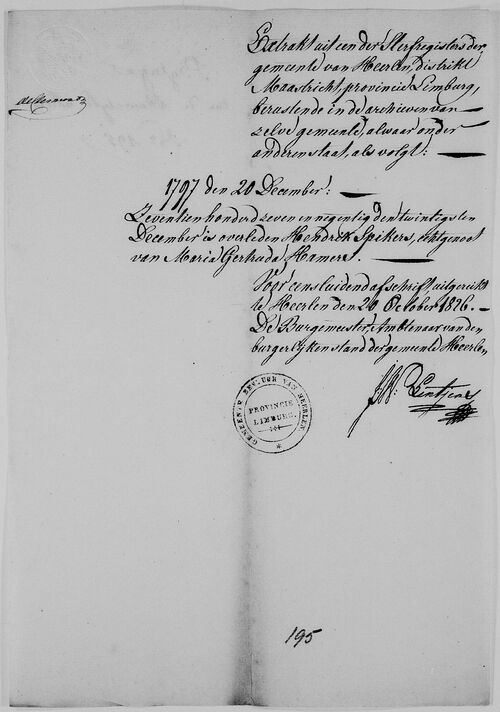 Extrakt uit een der Sterfregisters der
gemeente van Heerlen, distrikt
Maastricht, provincie Limburg,
berustende in de archieven van
zelve gemeente, alwaar onder
anderen staat, als volgt:
1797 den 20 December:
Zeventien honderd zeven en negentig den twintigsten
December is overleden Hendrik Spikers, echtgenoot
van Maria Gertruda Hamers.
Voor eensluidend afschrift, uitgereikt
te Heerlen den 20 October 1826.
De Burgemeester, Ambtenaar van den
burgerlyken stand der gemeente Heerlen
GEMEENTE BESTUUR VAN HEERLEN
PROVINCIE
LIMBURG.
195